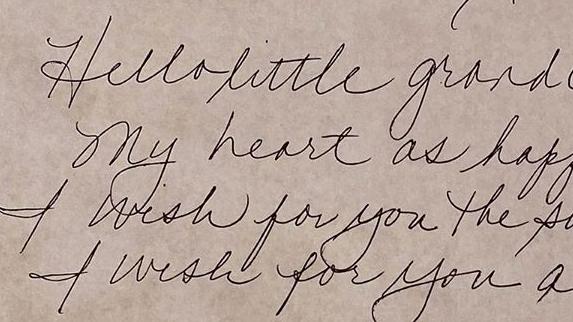 Hello little grand
My heart as hap
I wish for you the su
I wish for you a